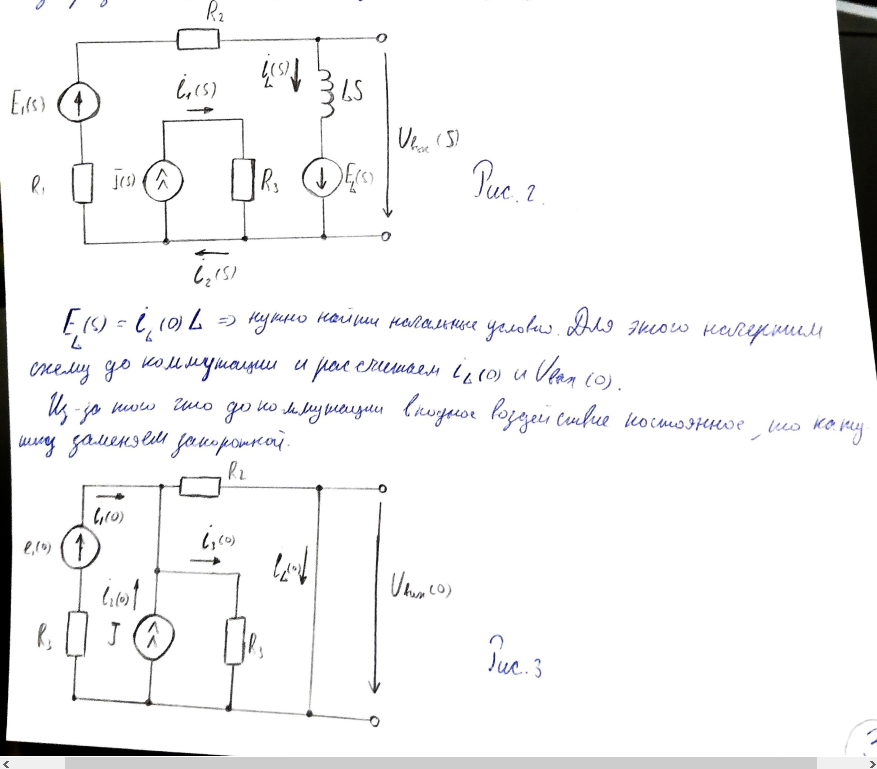 R2
i1(S)
iL(S)
LS
E1(S)
Uвых(S)
R1
J(S)
R3
EL(S)
Рис. 2.
i2(S)
EL(S) = iL(0) L => нужно найти начальные условия. Для этого начертим
схему до коммутации и рассчитаем iL(0) и Uвых(0).
Из-за того что до коммутации входное воздействие постоянное, то кату-
шку заменяем закороткой.
R2
i1(0)
e1(0)
i3(0)
iL(0)
Uвых(0)
i2(0)
R3
J
R3
Рис. 3
3